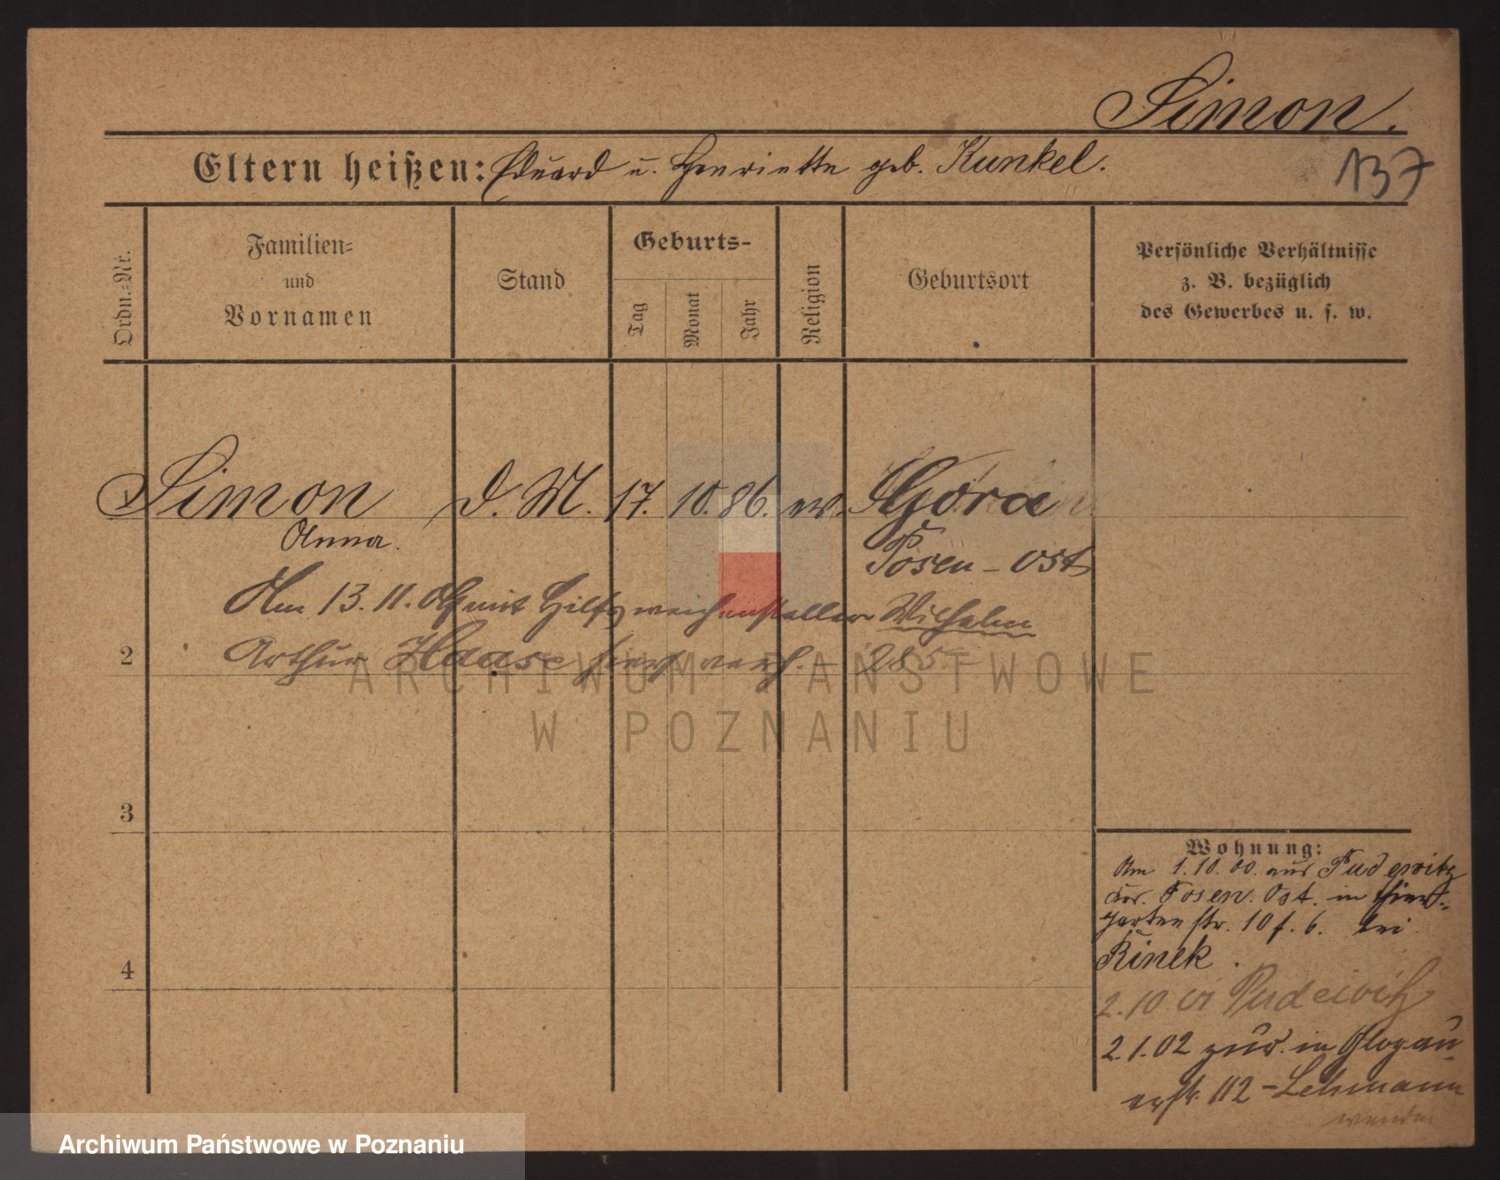 Simon.
Eltern heißen: Eduard u. Henriette geb. Kunkel.
137
Ordn.-Nr.
Familien-
und
Vornamen
Stand
Geburts-
Tag
Monat
Jahr
Religion
Geburtsort
Persönliche Verhältnisse
z. B. bezüglich
des Gewerbes u. s. w.
1 Simon D. M. 17. 10. 86. ev. Góra
Anna. Posen-Ost
Am 13. 11. mit Hilfsweichensteller Wilhelm
2 Arthur Haase hier verh. – 285 –
ARCHIWUM PAŃSTWOWE
W POZNANIU
3
Wohnung:
Am 1. 10. 00. aus Pudewitz
Posen. Ost. in Thier-
gartenstr. 10 f. 6. bei
Rinek.
4
2. 10. 01 Pudewitz
2. 1. 02 zur. in Glogau-
erstr. 112 – Lehmann
wenden
Archiwum Państwowe w Poznaniu